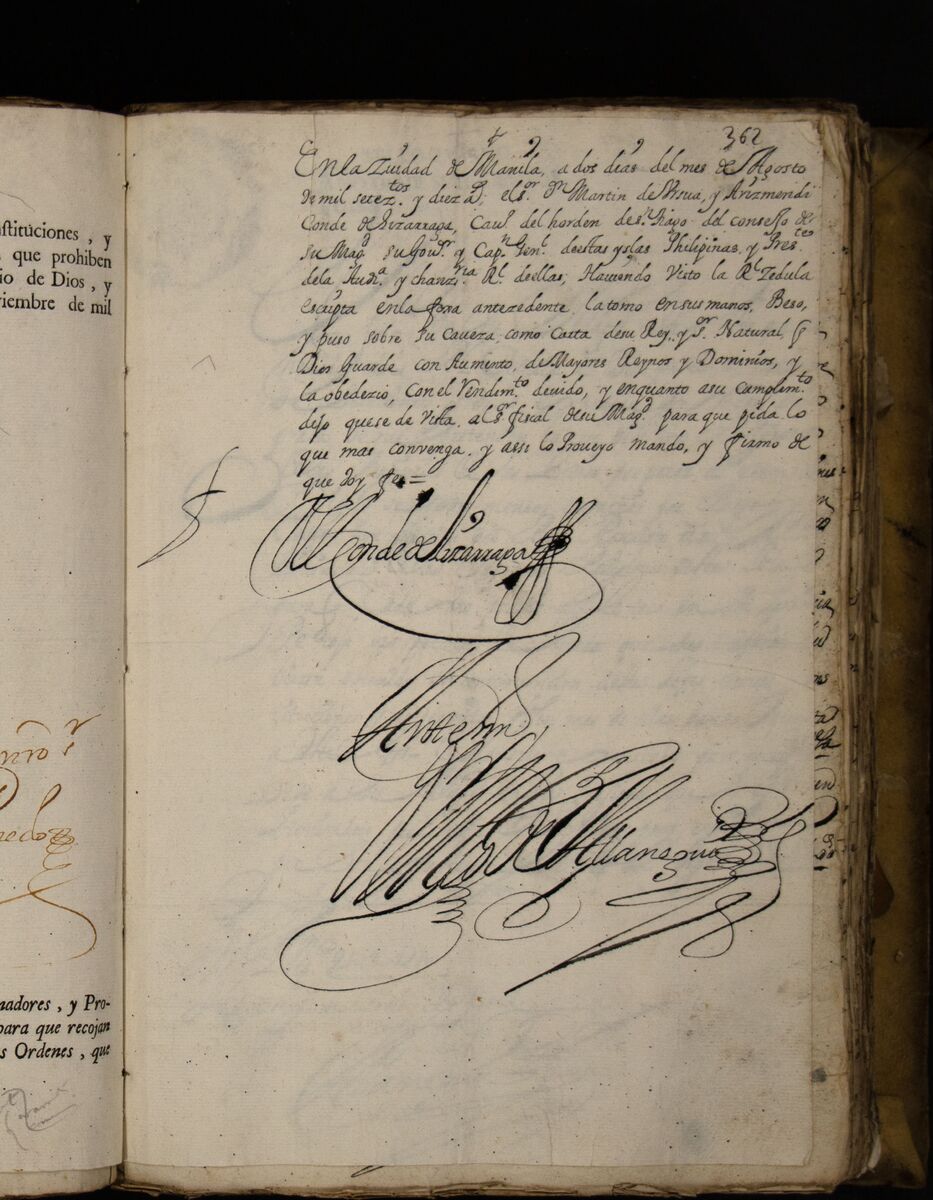 stituciones, y
que prohiben
io de Dios, y
iembre de mil
nadores, y Pro-
para que recojan
s Ordenes, que
362
En la Zuidad de Manila, a dos dias del mes de Agosto
de mil setez.tos y diez a.s; el s.or Dn Martin de Vrsua, y Arizmendi
Conde de Lizarraga, Cau.o del horden de s.n tiago del consejo de
su Mag.d su Gou.or y Cap.n Gen.l de estas yslas Philipinas, y Pres.te
dela Aud.a y chanz.ria R.l de ellas, Hauiendo Visto la R.l Zedula
escripta en la foxa antezedente, la tomo en sus manos, Beso,
y puso sobre su caueza, como Carta de su Rey, y s.or Natural, q
Dios Guarde con Aumento, de Mayores Reynos y Dominios, y
la obedezio, con el Rendim.to deuido, y en quanto a su cumplim.to
dijo que se de Vista, al s.or fiscal de su Mag.d para que pida lo
que mas convenga, y assi lo Proueyo mando, y firmo de
que doy fee =
El Conde de Lizarraga
Ante mi